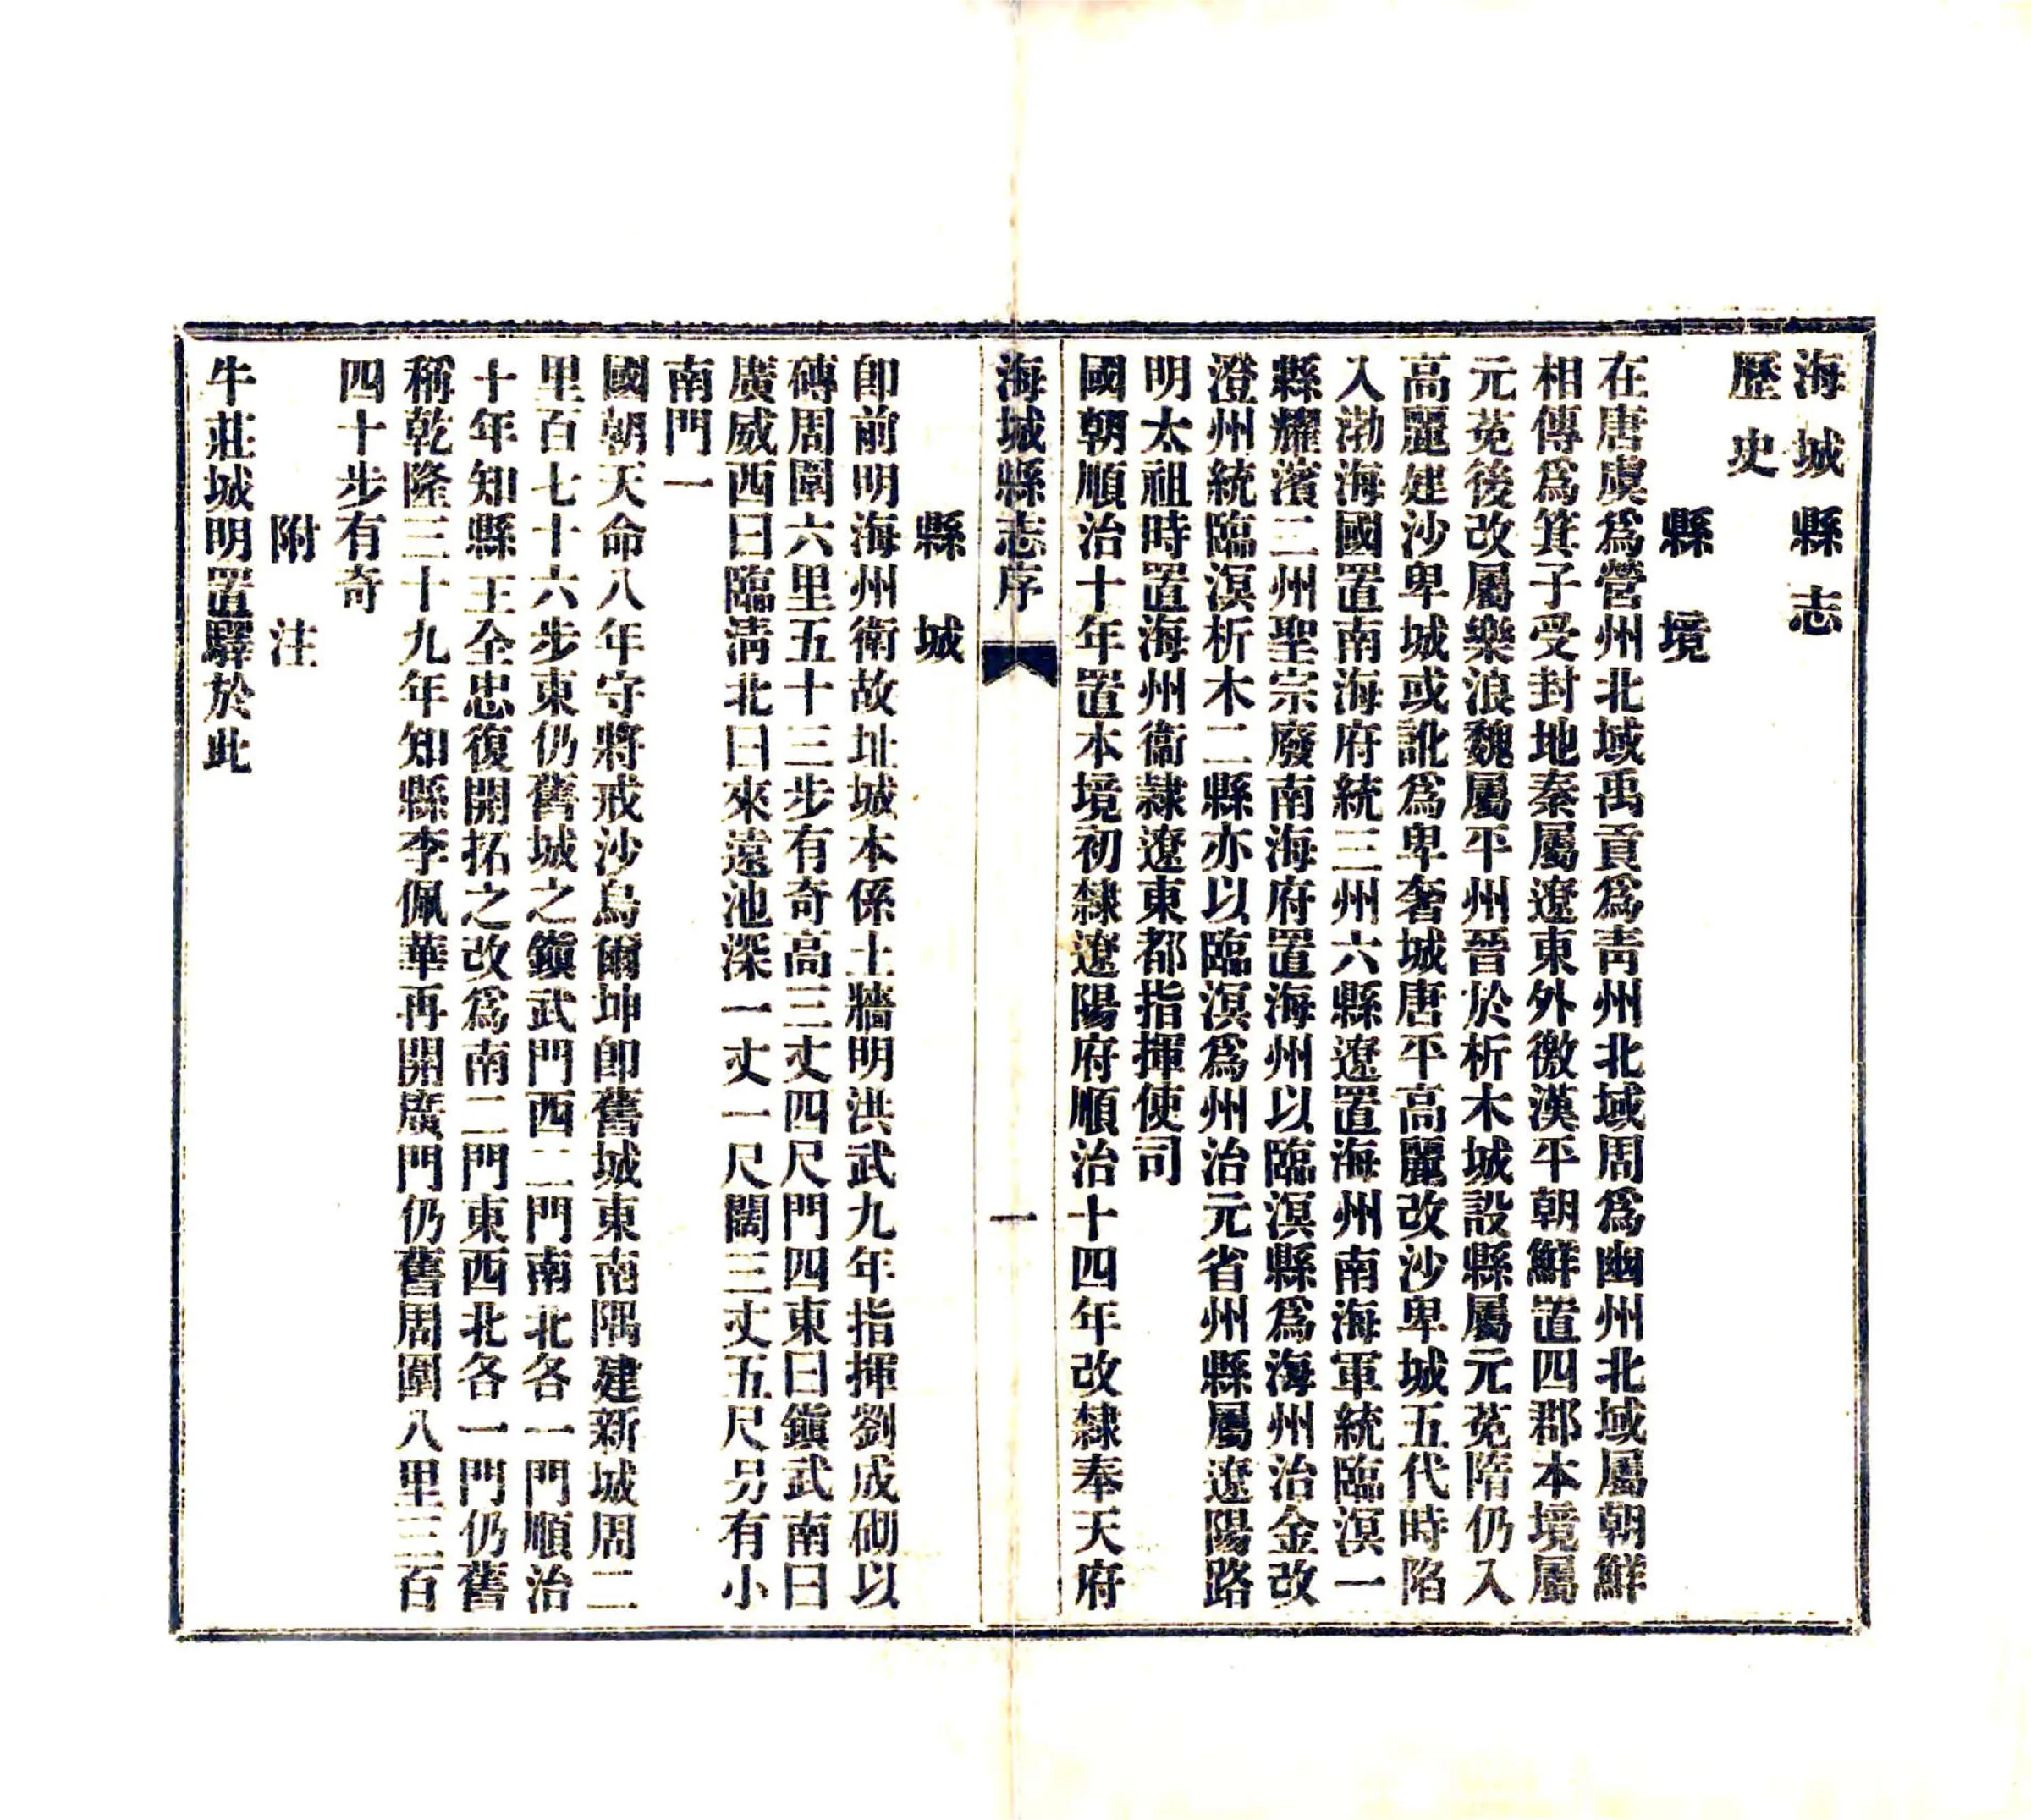 海城縣志
歷史
縣境
在唐虞爲營州北域禹貢爲靑州北域周爲幽州北域屬朝鮮
相傳爲箕子受封地秦屬遼東外徼漢平朝鮮置四郡本境屬
元菟後改屬樂浪魏屬平州晉於析木城設縣屬元菟隋仍入
高麗建沙卑城或訛爲卑奢城唐平高麗改沙卑城五代時陷
入渤海國置南海府統三州六縣遼置海州南海軍統臨溟一
縣耀濱二州聖宗廢南海府置海州以臨溟縣爲海州治金改
澄州統臨溟析木二縣亦以臨溟爲州治元省州縣屬遼陽路
明太祖時置海州衞隸遼東都指揮使司
國朝順治十年置本境初隸遼陽府順治十四年改隸奉天府
海城縣志序
一
縣城
卽前明海州衛故址城本係土牆明洪武九年指揮劉成砌以
磚周圍六里五十三步有奇高三丈四尺門四東曰鎭武南曰
廣威西曰臨淸北曰來遠池深一丈一尺闊三丈五尺另有小
南門一
國朝天命八年守將戒沙烏爾坤卽舊城東南隅建新城周二
里百七十六步東仍舊城之鎭武門西二門南北各一門順治
十年知縣王全忠復開拓之改爲南二門東西北各一門仍舊
稱乾隆三十九年知縣李佩華再開廣門仍舊周圍八里三百
四十步有奇
附注
牛莊城明置驛於此